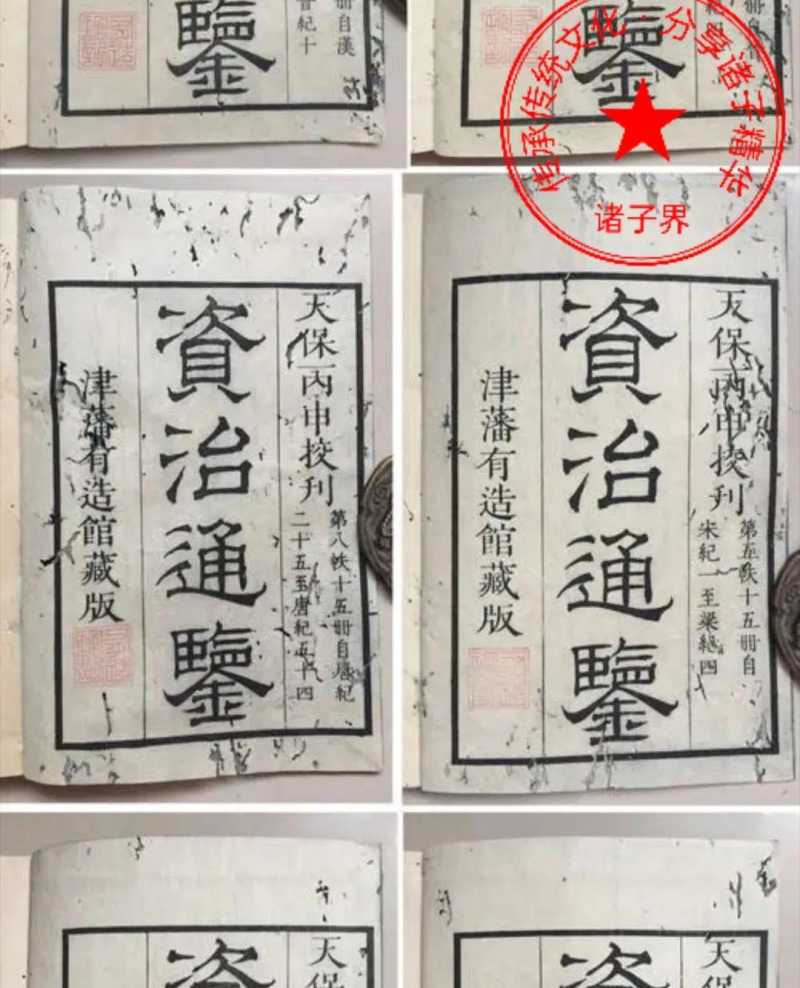 鑒
冊自漢
晉紀十
鑒
传承传统文化·分享诸子精华
诸子界
天保丙申挍刊
第八帙十五冊自唐紀
二十五至唐紀五十四
資治通鑒
津藩有造館藏版
天保丙申挍刊
第五帙十五冊自
宋紀一至梁紀四
資治通鑒
津藩有造館藏版
天保
資
天保
資